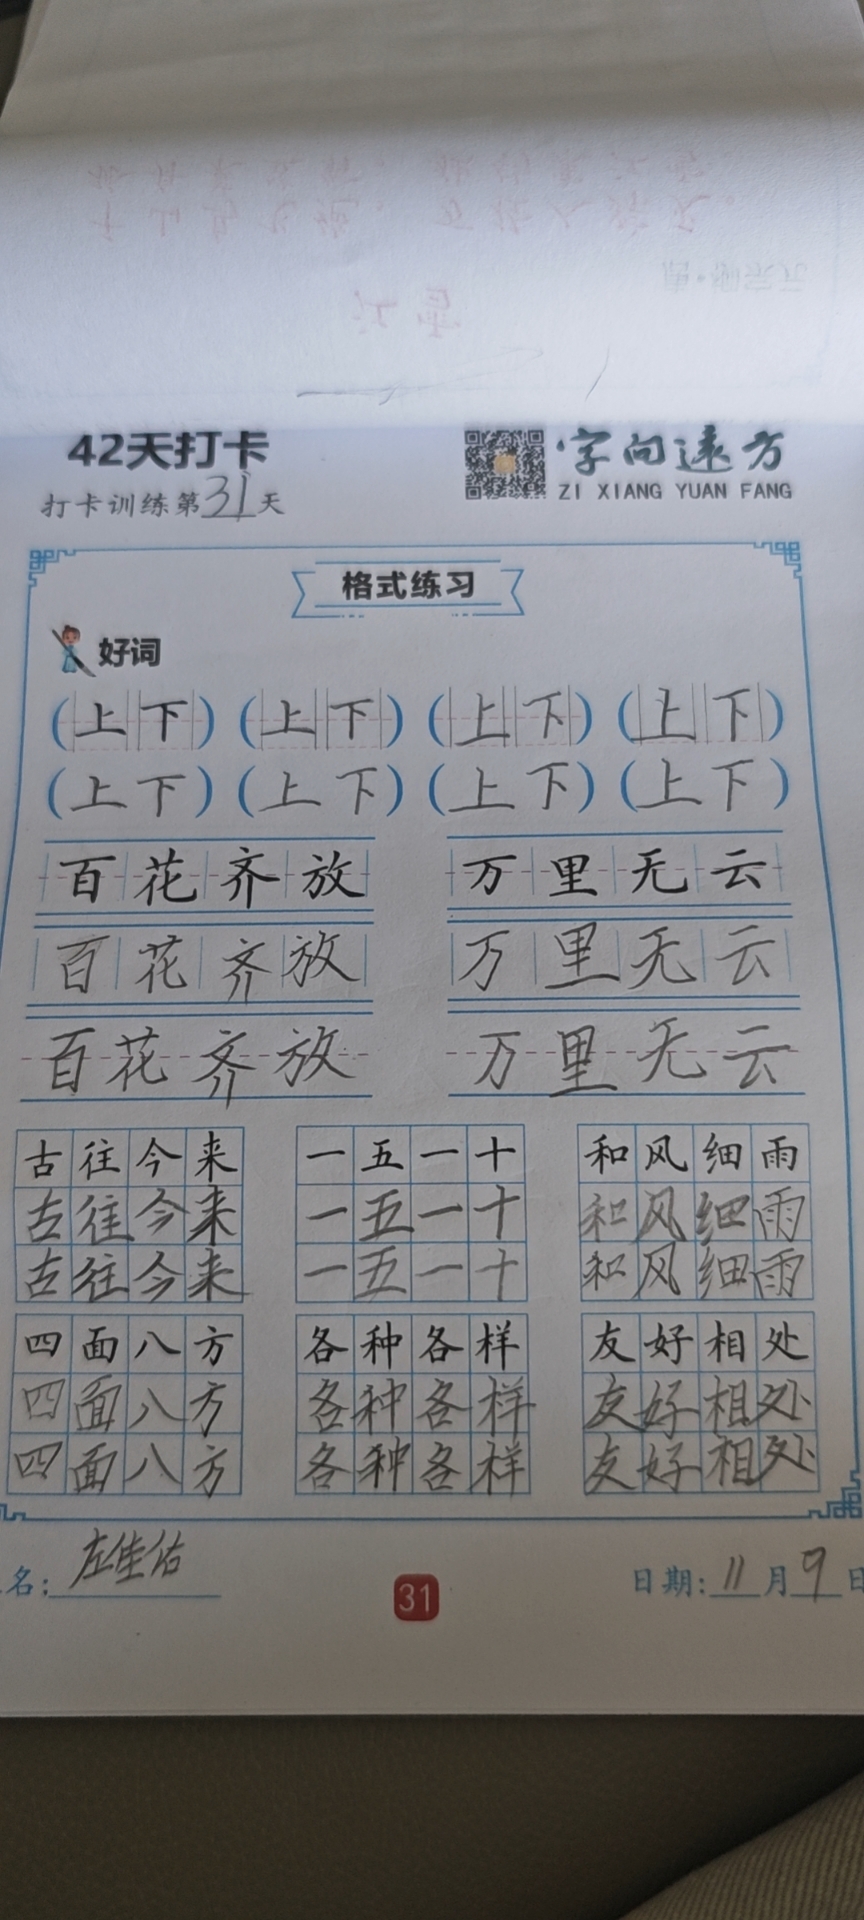 42天打卡
字向远方
ZI XIANG YUAN FANG
打卡训练第31天
格式练习
好词
(上下) (上下) (上下) (上下)
(上下) (上下) (上下) (上下)
百花齐放 万里无云
百花齐放 万里无云
百花齐放 万里无云
古往今来 一五一十 和风细雨
古往今来 一五一十 和风细雨
古往今来 一五一十 和风细雨
四面八方 各种各样 友好相处
四面八方 各种各样 友好相处
四面八方 各种各样 友好相处
名: 左佳佑
31
日期: 11月9日